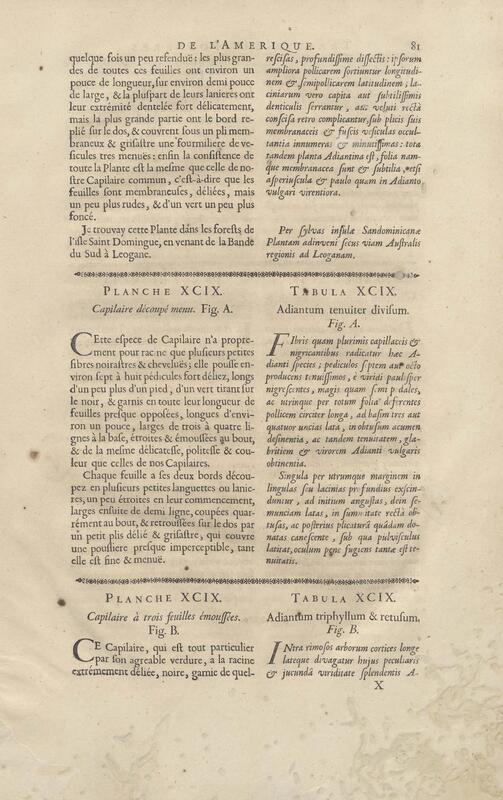 DE L'AMERIQUE. 81
quelque fois un peu refenduë: les plus gran-
des de toutes ces feuilles ont environ un
pouce de longueur, sur environ demi pouce
de large, & la pluspart de leurs lanieres ont
leur extrémité dentelée fort délicatement,
mais la plus grande partie ont le bord re-
plié sur le dos, & couvrent sous un pli mem-
braneux & grisastre une fourmiliere de ve-
sicules tres menuës: enfin la consistence de
toute la Plante est la mesme que celle de no-
stre Capilaire commun, c'est-à-dire que les
feuilles sont membraneuses, déliées, mais
un peu plus rudes, & d'un vert un peu plus
foncé.
Je trouvay cette Plante dans les forests de
l'isle Saint Domingue, en venant de la Bande
du Sud à Leogane.
rescisas, profundissime dissectis: ipsorum
ampliora pollicarem sortiuntur longitudi-
nem & semipollicarem latitudinem; la-
ciniarum vero capita aut subtilissimis
denticulis serrantur, aut veluti rectà
conscisa retro complicantur, sub plicis suis
membranaceis & fuscis vesiculas occul-
tantia innumeras & minutissimas: tota
tandem planta Adiantina est, folia nam-
que membranacea sunt & subtilia, etsi
asperiuscula & paulo quam in Adianto
vulgari virentiora.
Per sylvas insulæ Sandominicanæ
Plantam adinveni secus viam Australis
regionis ad Leoganam.
PLANCHE XCIX.
Capilaire découpé menu. Fig. A.
CEtte espece de Capilaire n'a propre-
ment pour racine que plusieurs petites
fibres noirastres & cheveluës; elle pousse en-
viron sept à huit pédicules fort déliez, longs
d'un peu plus d'un pied, d'un vert tirant sur
le noir, & garnis en toute leur longueur de
feuilles presque opposées, longues d'envi-
ron un pouce, larges de trois à quatre li-
gnes à la base, étroites & émoussées au bout,
& de la mesme délicatesse, politesse & cou-
leur que celles de nos Capilaires.
Chaque feuille a ses deux bords décou-
pez en plusieurs petites languettes ou lanie-
res, un peu étroites en leur commencement,
larges ensuite de demi ligne, coupées quar-
rément au bout, & retroussées sur le dos par
un petit plis delié & grisastre, qui couvre
une poussiere presque imperceptible, tant
elle est fine & menuë.
TABULA XCIX.
Adiantum tenuiter divisum.
Fig. A.
FIbris quam plurimis capillaceis &
nigricantibus radicatur hæc A-
dianti species; pediculos septem aut octo
producens tenuissimos, è viridi paulisper
nigrescentes, magis quam semipedales,
ac utrinque per totum folia deferentes
pollicem circiter longa, ad basim tres aut
quatuor uncias lata, in obtusum acumen
desinentia, ac tandem tenuitatem, gla-
britiem & virorem Adianti vulgaris
obtinentia.
Singula per utrumque marginem in
lingulas seu lacinias profundius exscin-
duntur, ad initium angustas, dein se-
munciam latas, in summitate rectà ob-
tusas, ac posterius plicaturâ quâdam do-
natas canescente, sub qua pulvisculus
latitat, oculum pene fugiens tantæ est te-
nuitatis.
PLANCHE XCIX.
Capilaire à trois feuilles émoussées.
Fig. B.
CE Capilaire, qui est tout particulier
par son agreable verdure, a la racine
extrémement déliée, noire, garnie de quel-
TABULA XCIX.
Adiantum triphyllum & retusum.
Fig. B.
INtra rimosos arborum cortices longe
lateque divagatur hujus peculiaris
& jucundâ viriditate splendentis A-
X